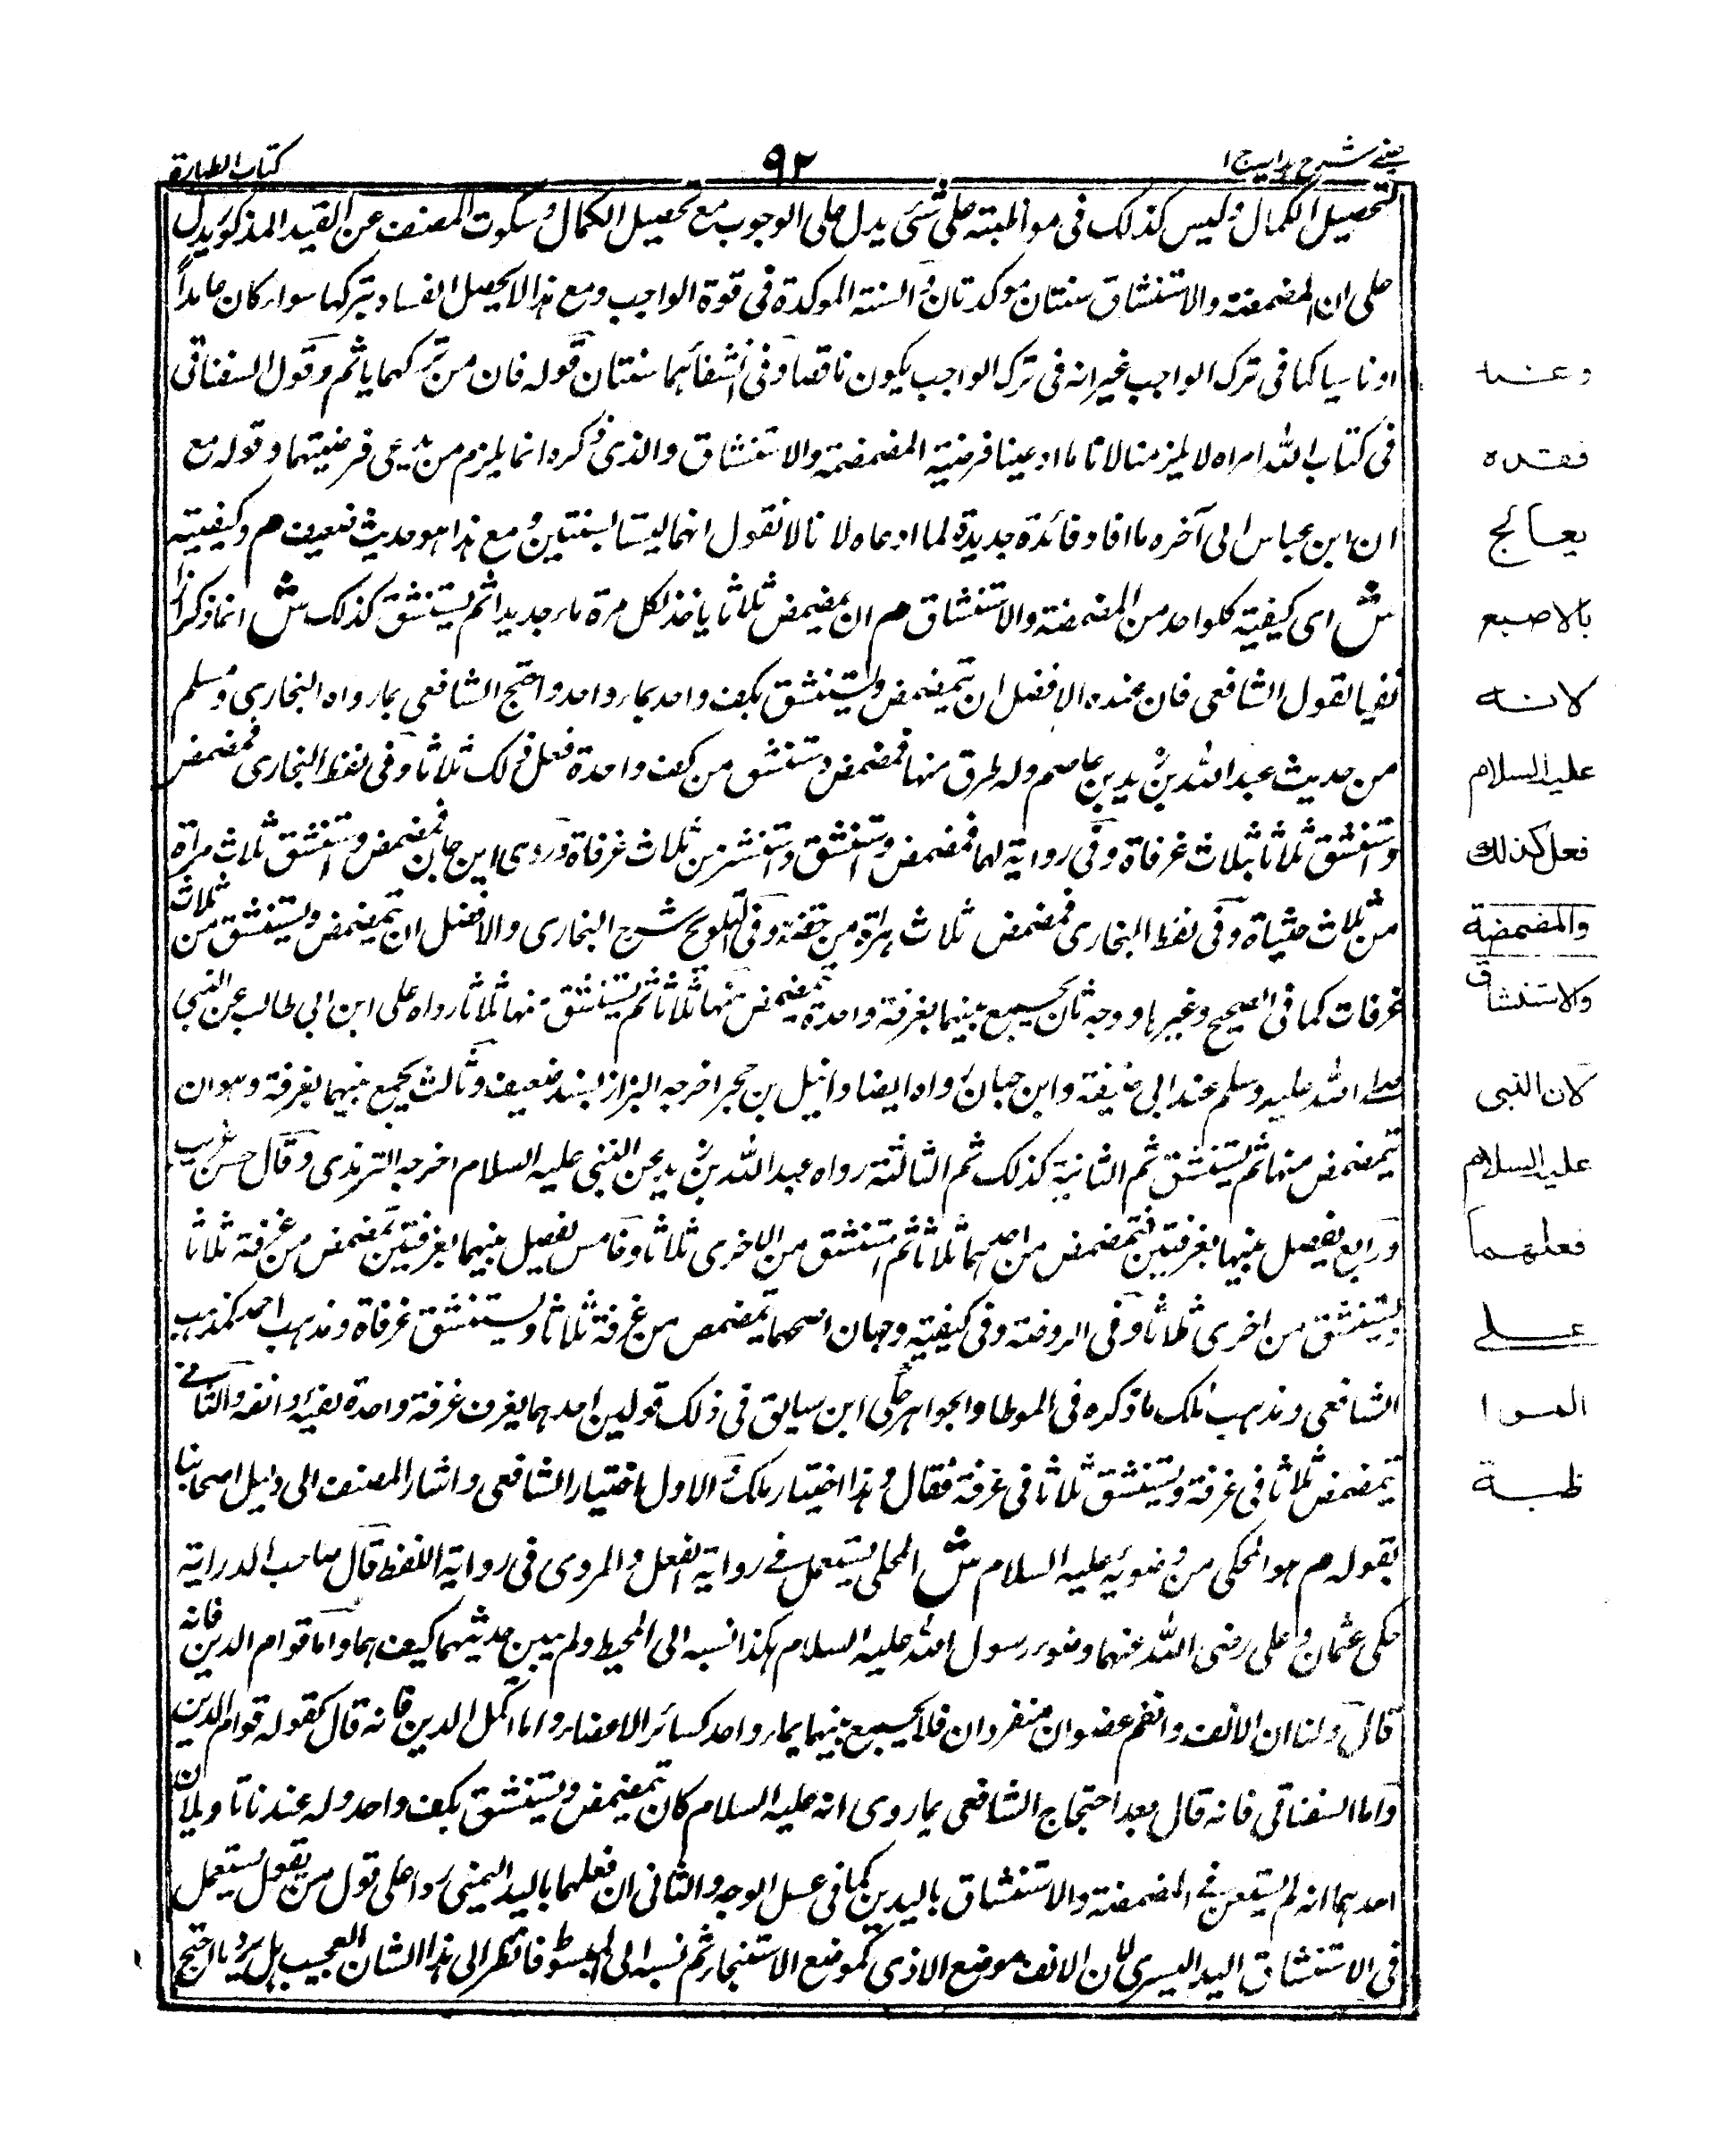 عينى شرح هداية ج ١
٩٢
كتاب الطهارة
لتحصيل الكمال وليس كذلك فى مواظبته على شئ يدل على الوجوب مع تحصيل الكمال وسكوت المصنف عن القيد المذكور يدل
على ان المضمضة والاستنشاق سنتان موكدتان والسنة الموكدة فى قوة الواجب ومع هذا لا يحصل الفساد بتركها سواء كان عامدا
او ناسيا كما فى ترك الواجب غير انه فى ترك الواجب يكون ناقصا وفى الشفا هما سنتان قوله فان من تركهما ياثم وقول السغناقى
فى كتاب الله امراه لا يلزمنا لانا ما ادعينا فرضية المضمضة والاستنشاق والذى ذكره انما يلزم من يدعى فرضيتهما وقوله مع
ان ابن عباس الى آخره ما افاد فائدة جديدة لما ادعاه لانا لا نقول انهما ليستا بسنتين ومع هذا هو حديث ضعيف م وكيفيته
ش اى كيفية كل واحد من المضمضة والاستنشاق م ان يمضمض ثلاثا ياخذ لكل مرة ماء جديدا ثم يستنشق كذلك ش انما ذكر هذا
نفيا لقول الشافعى فان عنده الافضل ان يتمضمض ويستنشق بكف واحد بماء واحد واحتج الشافعى بما رواه البخارى ومسلم
من حديث عبد الله بن زيد بن عاصم وله طرق منها فمضمض واستنشق من كف واحدة فعل ذلك ثلاثا وفى لفظ البخارى فمضمض
واستنشق ثلاثا بثلاث غرفاة وفى رواية لهما فمضمض واستنشق واستنثر من ثلاث غرفاة وروى ابن حبان فمضمض واستنشق ثلاث مراة
من ثلاث حثياة وفى لفظ البخارى فمضمض ثلاث مراة من حفنة وفى التلويح شرح البخارى والافضل ان يتمضمض ويستنشق من ثلاث
غرفات كما فى الصحيح وغيرها ووجه ثان يجمع بينهما بغرفة واحدة يتمضمض منها ثلاثا ثم يستنشق منها ثلاثا رواه على ابن ابى طالب عن النبى
صلى الله عليه وسلم عند ابى حنيفة وابن حبان رواه ايضا وائيل بن حجر اخرجه البزاز بسند ضعيف وثالث يجمع بينهما بغرفة وهو ان
يتمضمض منها ثم يستنشق ثم الثانية كذلك ثم الثالثة رواه عبد الله بن زيد عن النبى عليه السلام اخرجه الترمذى وقال حسن غريب
ورابع يفصل بينهما بغرفتين فتمضمض من احدهما ثلاثا ثم استنشق من الاخرى ثلاثا وخامس يفصل بينهما بغرفتين يتمضمض من غرفة ثلاثا
ويستنشق من اخرى ثلاثا وفى الروضة وفى كيفيته وجهان اصحهما يتمضمض من غرفة ثلاثا ويستنشق غرفاة ومذهب احمد كمذهب
الشافعى ومذهب مالك ما ذكره فى الموطا والجواهر حكى ابن سابق فى ذلك قولين احدهما يغرف غرفة واحدة لفيه وانفه والثانى
يتمضمض ثلاثا فى غرفة ويستنشق ثلاثا فى غرفة فقال وهذا اختيار مالك والاول اختيار الشافعى واشار المصنف الى دليل اصحابنا
بقوله م هو المحكى من وضوئه عليه السلام ش المحكى يستعمل فى رواية الفعل والمروى فى رواية اللفظ قال صاحب الدراية
حكى عثمان وعلى رضى الله عنهما وضوء رسول الله عليه السلام هكذا نسبه الى المحيط ولم يبين حديثيهما كيف هما واما قوام الدين فانه
قال ولنا ان الانف والفم عضوان منفردان فلا يجمع بينهما بماء واحد كسائر الاعضاء واما اكمل الدين فانه قال كقوله قوام الدين
واما السغناقى فانه قال بعد احتجاج الشافعى بما روى انه عليه السلام كان يتمضمض ويستنشق بكف واحد وله عندنا تاويلان
احدهما انه لم يستعن فى المضمضة والاستنشاق باليدين كما فى غسل الوجه والثانى ان فعلهما باليد اليمنى ردا على قول من يقول يستعمل
فى الاستنشاق اليد اليسرى لان الانف موضع الاذى كموضع الاستنجاء ثم نسبه الى المبسوط فانظر الى هذا الشان العجيب هل يرد ما احتج
وعنه
فقده
يعالج
بالاصبع
لانه
عليه السلام
فعل كذلك
والمضمضة
والاستنشاق
لان النبى
عليه السلام
فعلهما
على
الموا
ظبة